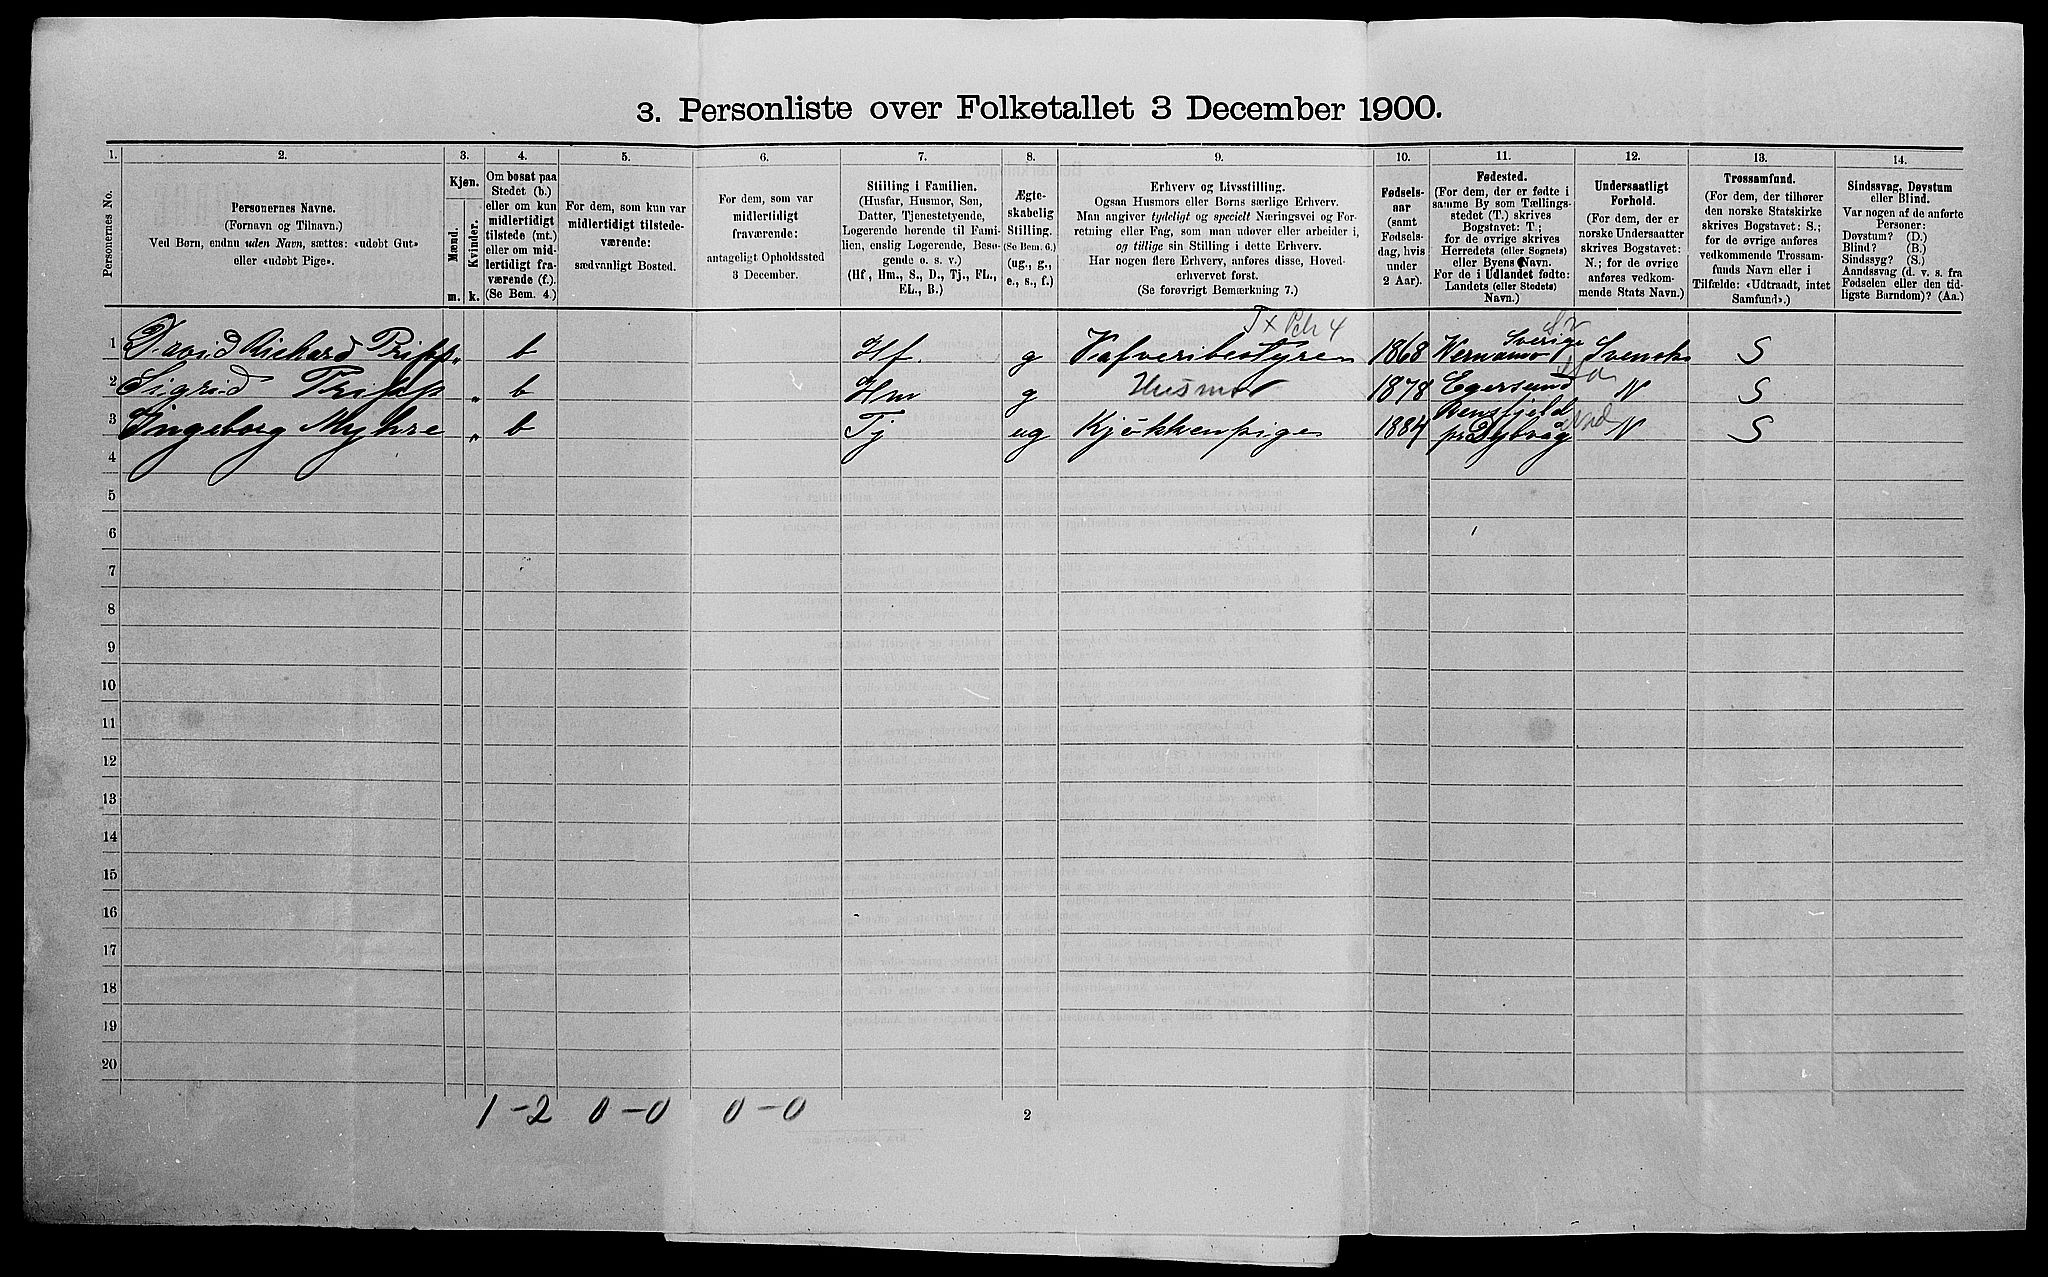 3. Personliste over Folketallet 3 December 1900.
1. 2. 3. 4. 5. 6. 7. 8. 9. 10. 11. 12. 13. 14.
Personernes No.
Personernes Navne.
(Fornavn og Tilnavn.)
Ved Børn, endnu uden Navn, sættes: «udøbt Gut»
eller «udøbt Pige».
Kjøn.
Mænd.
Kvinder.
m. k.
Om bosat paa
Stedet (b.)
eller om kun
midlertidigt
tilstede (mt.)
eller om mid-
lertidigt fra-
værende (f.).
(Se Bem. 4.)
For dem, som kun var
midlertidigt tilstede-
værende:
sædvanligt Bosted.
For dem, som var
midlertidigt
fraværende:
antageligt Opholdssted
3 December.
Stilling i Familien.
(Husfar, Husmor, Søn,
Datter, Tjenestetyende,
Logerende hørende til Fami-
lien, enslig Logerende, Besø-
gende o. s. v.)
(Hf, Hm., S., D., Tj., FL.,
EL., B.)
Ægte-
skabelig
Stilling.
(Se Bem. 6.)
(ug., g.,
e., s., f.)
Erhverv og Livsstilling.
Ogsaa Husmors eller Børns særlige Erhverv.
Man angiver tydeligt og specielt Næringsvei og For-
retning eller Fag, som man udøver eller arbeider i,
og tillige sin Stilling i dette Erhverv.
Har nogen flere Erhverv, anføres disse, Hoved-
erhvervet først.
(Se forøvrigt Bemærkning 7.)
Fødsels-
aar
(samt
Fødsels-
dag, hvis
under
2 Aar).
Fødested.
(For dem, der er fødte i
samme By som Tællings-
stedet (T.) skrives
Bogstavet: T.;
for de øvrige skrives
Herredets (eller Sognets)
eller Byens Navn.
For de i Udlandet fødte:
Landets (eller Stedets)
Navn.)
Undersaatligt
Forhold.
(For dem, der er
norske Undersaatter
skrives Bogstavet:
N.; for de øvrige
anføres vedkom-
mende Stats Navn.)
Trossamfund.
(For dem, der tilhører
den norske Statskirke
skrives Bogstavet: S.;
for de øvrige anføres
vedkommende Trossam-
funds Navn eller i
Tilfælde: «Udtraadt, intet
Samfund».)
Sindssvag, Døvstum
eller Blind.
Var nogen af de anførte
Personer:
Døvstum? (D.)
Blind? (B.)
Sindssyg? (S.)
Aandssvag (d. v. s. fra
Fødselen eller den tid-
ligste Barndom)? (Aa.)
1 David Richard Tripp " b Hf. g Kafveribestyrer 1868 Wernamo Sverige Svensk S
2 Sigrid Tripp " b Hm g Husmor 1878 Egersund N S
3 Ingeborg Myhre " b Tj ug Kjøkkenpige 1884 N S
4
5
6
7
8
9
10
11
12
13
14
15
16
17
18
19
20
1-2 0-0 0-0
2